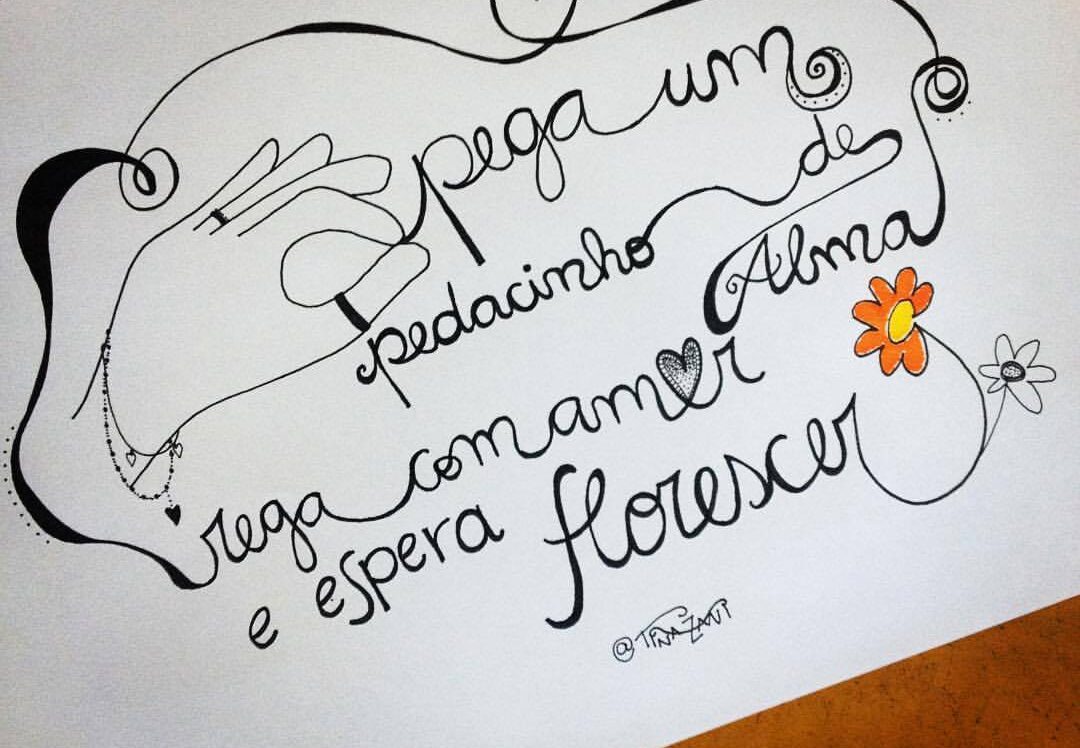 pega um
pedacinho de
Alma
rega com amor
e espera florescer
@TINAZANI